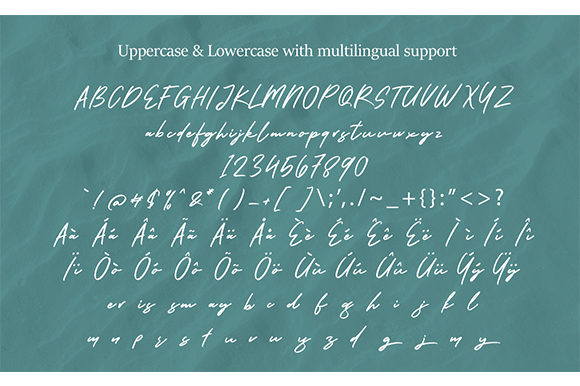 Uppercase & Lowercase with multilingual support
ABCDEFGHIJKLMNOPQRSTUVWXYZ
abcdefghijklmnopqrstuvwxyz
1234567890
`!@#$%^&*()_+[ ]\;',./~_+{}:"<>?
Àà Áá Ââ Ãã Ää Åå Èè Éé Êê Ëë Ìì Íí Îî
Ïï Òò Óó Ôô Õõ Öö Ùù Úú Ûû Üü Ýý Ÿÿ
er is sm ay b c d e f g h i j k l
m n p r s t u v w y z d g j m y